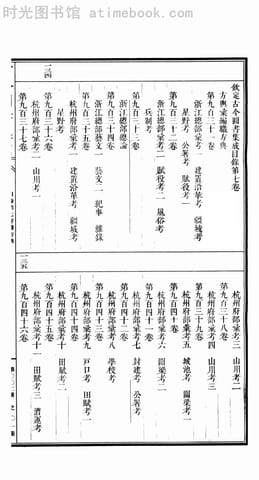 时光图书馆 - atimebook.com
欽定古今圖書集成目錄第七卷
方輿彙編職方典
第九百三十一卷
浙江總部彙考一 建置沿革考 疆域考
星野考 公署考 賦役考一
第九百三十二卷
浙江總部彙考二 賦役考二 風俗考
兵制考
第九百三十三卷
浙江總部總論
第九百三十四卷
浙江總部藝文一 藝文二 紀事 雜錄
第九百三十五卷
杭州府部彙考一 建置沿革考 疆域考
星野考
第九百三十六卷
杭州府部彙考二 山川考一
第九百三十七卷
杭州府部彙考三 山川考二
第九百三十八卷
杭州府部彙考四 山川考三
第九百三十九卷
杭州府部彙考五 城池考 關梁考一
第九百四十卷
杭州府部彙考六 關梁考二
第九百四十一卷
杭州府部彙考七 封建考 公署考
第九百四十二卷
杭州府部彙考八 學校考
第九百四十三卷
杭州府部彙考九 戶口考 田賦考一
第九百四十四卷
杭州府部彙考十 田賦考二
第九百四十五卷
杭州府部彙考十一 田賦考三 漕運考
第九百四十六卷
一三四
一三五